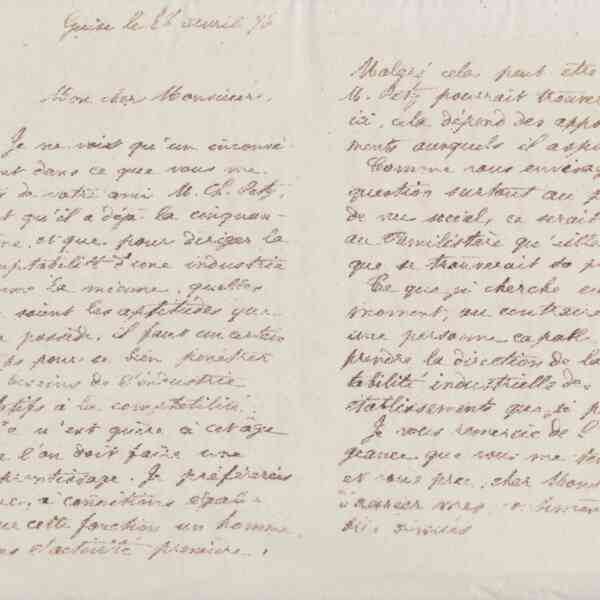 Guise le avril 76
Mon cher Monsieur,
Je ne vois qu'un inconvé
nt dans ce que vous me
de votre ami M. Ch.
t qu'il a déjà la cinquan-
ne, et que pour diriger la
mptabilité d'une industrie
me la mienne, quelles
soient les aptitudes que
possède, il faut un certain
ps pour se bien pénétrer
besoins de l'industrie
latifs à la comptabilité.
n'est guère à cet age
e l'on doit faire une
prentissage. Je préférerais
nc, à conditions égales
ur cette fonction un homme
ns d'activité première.
Malgré cela peut être
M. pourrait trouver
ici, cela dépend des appoi
ments auxquels il aspi
Comme vous envisag
question surtout au p
de vue social, ce serait
au Familistère qu'elle
que se trouverait sa p
Ce que je cherche en
moment, au contraire
une personne capable
prendre la direction de la
tabilité industrielle des
établissements que je p
Je vous remercie de l'
geance que vous me
et vous prie, cher Mons
d'agréer mes